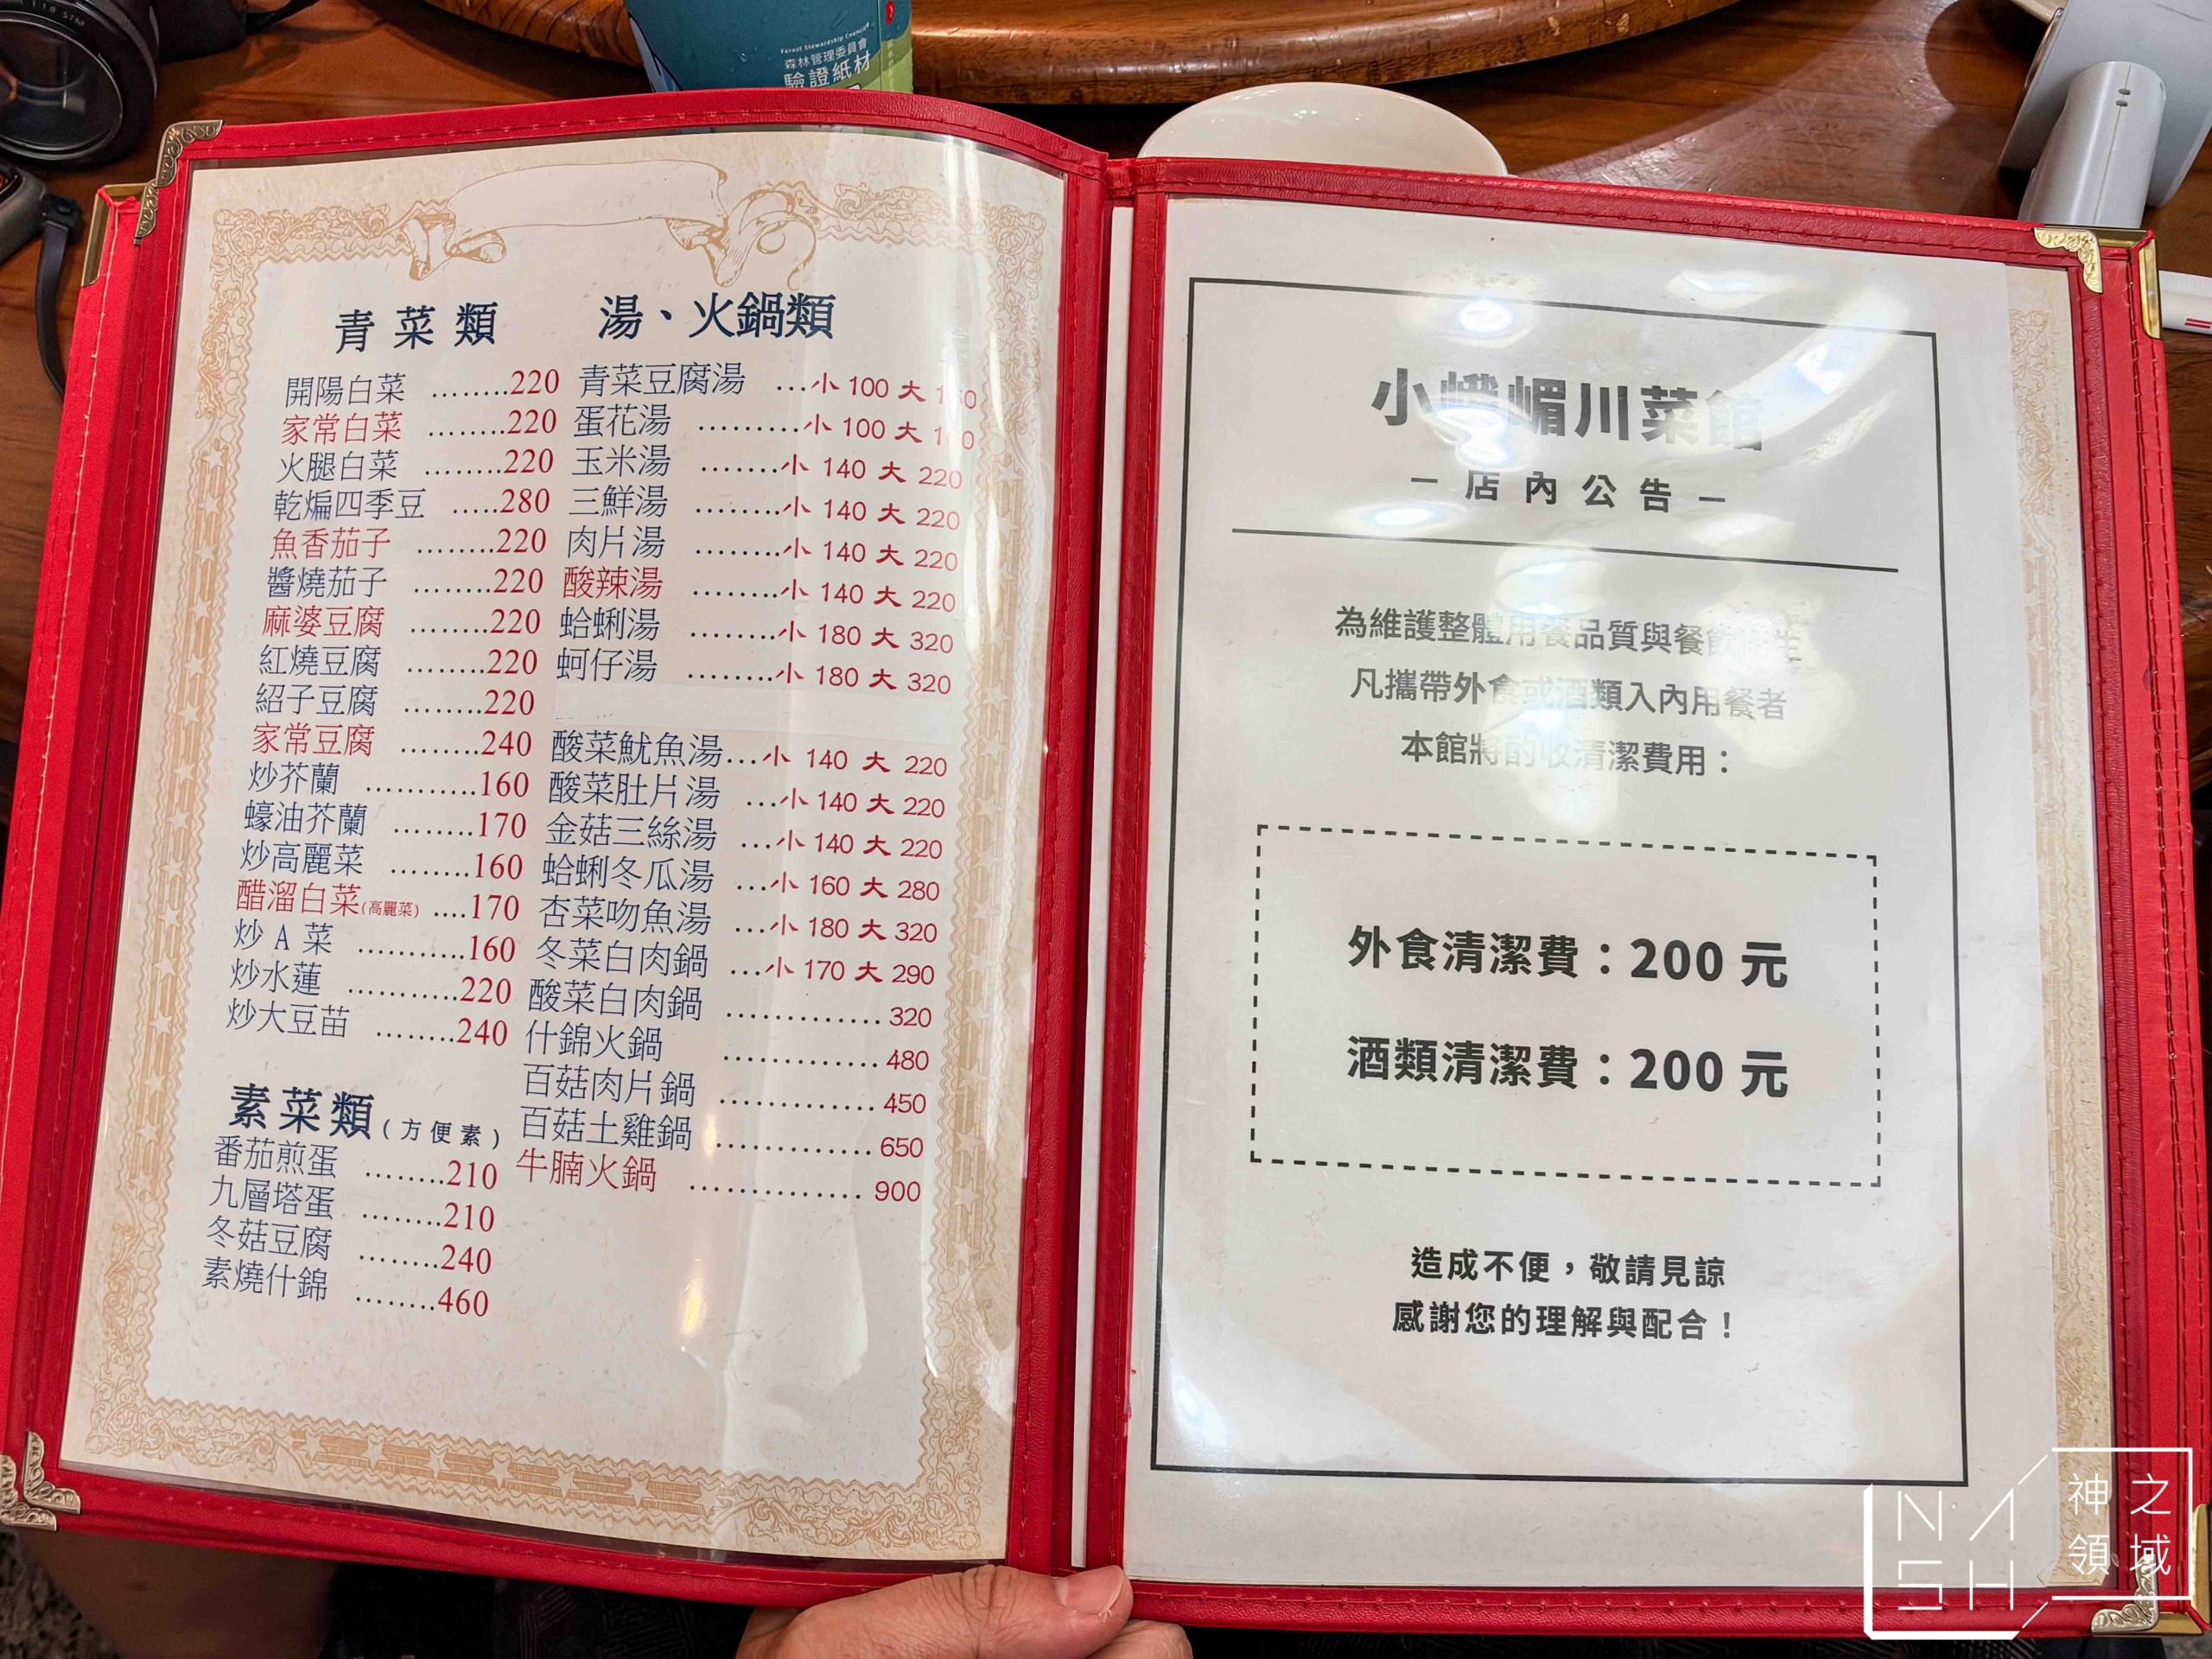 Forest Stewardship Council®
森林管理委員會
驗證紙材
青菜類
開陽白菜 ........220
家常白菜 ........220
火腿白菜 ........220
乾煸四季豆 .....280
魚香茄子 ........220
醬燒茄子 ........220
麻婆豆腐 ........220
紅燒豆腐 ........220
紹子豆腐 ........220
家常豆腐 ........240
炒芥蘭 ...........160
蠔油芥蘭 ........170
炒高麗菜 ........160
醋溜白菜(高麗菜) ....170
炒 A 菜 ...........160
炒水蓮 ...........220
炒大豆苗 ........240
素菜類(方便素)
番茄煎蛋 ........210
九層塔蛋 ........210
冬菇豆腐 ........240
素燒什錦 ........460
湯、火鍋類
青菜豆腐湯 ...小 100 大
蛋花湯 .........小 100 大
玉米湯 ........小 140 大 220
三鮮湯 ........小 140 大 220
肉片湯 ........小 140 大 220
酸辣湯 ........小 140 大 220
蛤蜊湯 ........小 180 大 320
蚵仔湯 ........小 180 大 320
酸菜魷魚湯...小 140 大 220
酸菜肚片湯 ...小 140 大 220
金菇三絲湯 ...小 140 大 220
蛤蜊冬瓜湯 ...小 160 大 280
杏菜吻魚湯 ...小 180 大 320
冬菜白肉鍋 ...小 170 大 290
酸菜白肉鍋 ............. 320
什錦火鍋 ............. 480
百菇肉片鍋 ............. 450
百菇土雞鍋 ............. 650
牛腩火鍋 .............. 900
小峨嵋川菜館
— 店內公告 —
為維護整體用餐品質與餐飲衛生
凡攜帶外食或酒類入內用餐者
本館將酌收清潔費用：
外食清潔費：200 元
酒類清潔費：200 元
造成不便，敬請見諒
感謝您的理解與配合！
NASH
神之領域